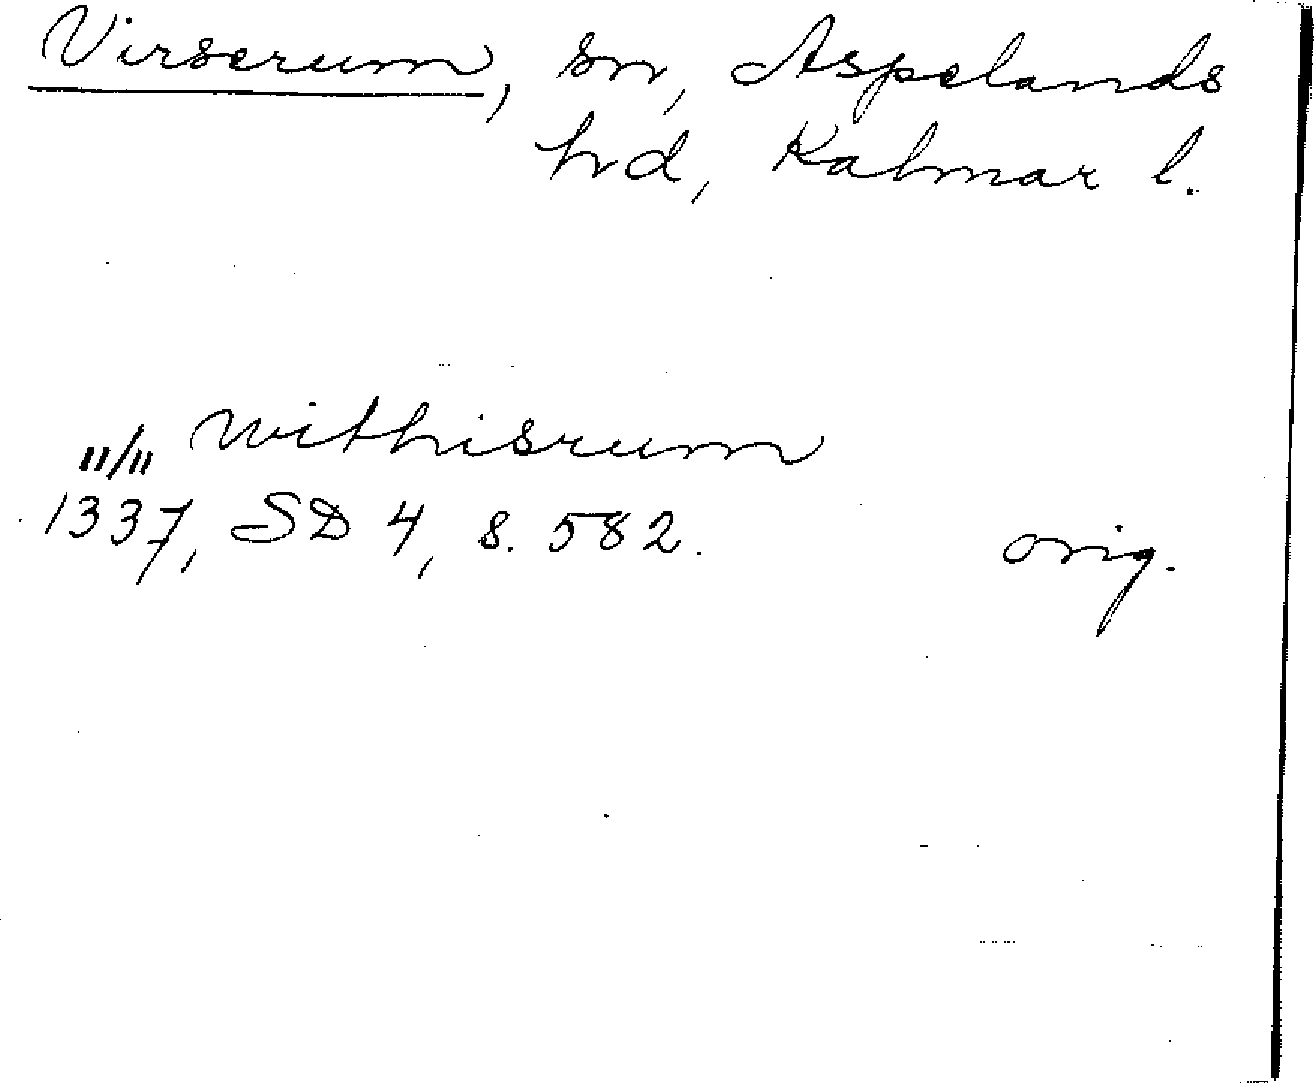 Virserum, sn, Aspelands
hd, Kalmar l.
11/11 Withisrum
1337, SD 4, s. 582.
orig.